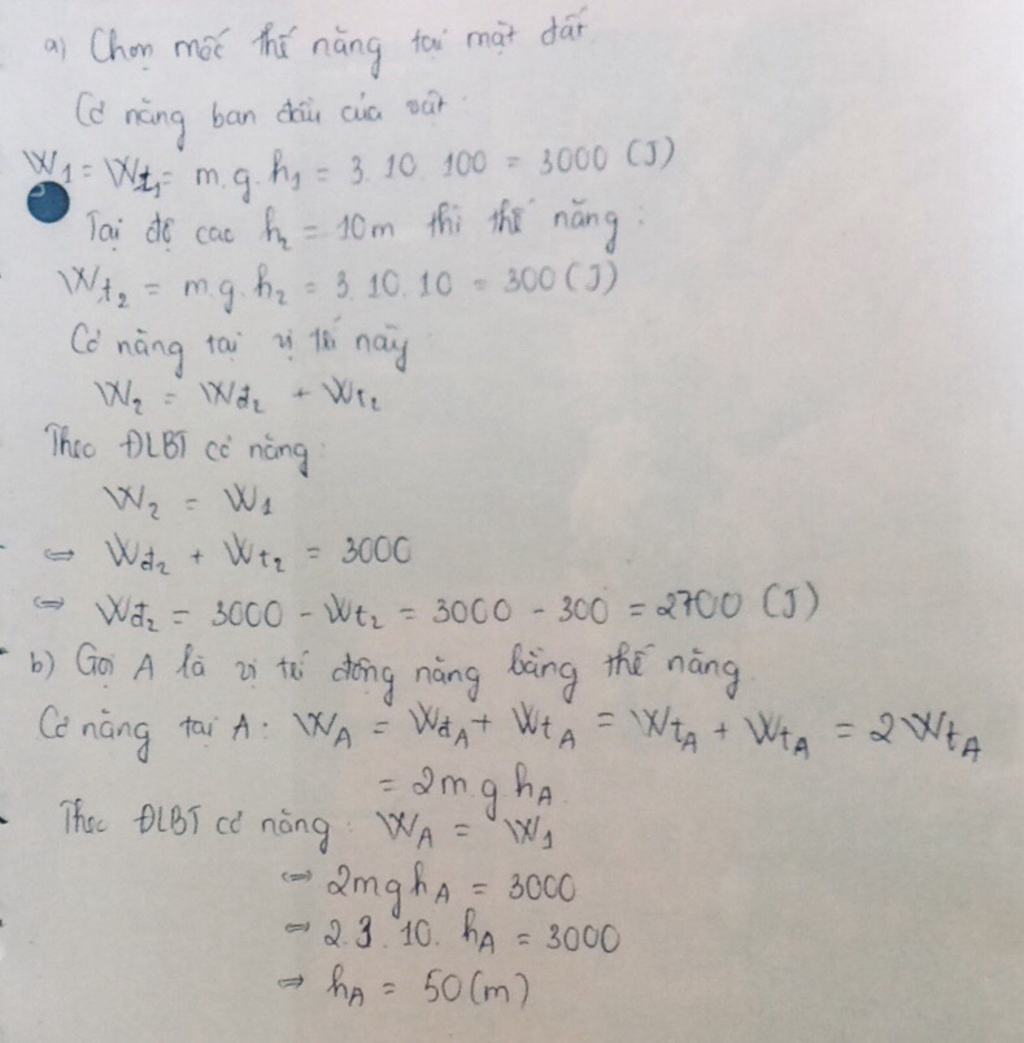 a) Chọn mốc thế năng tại mặt đất.
Cơ năng ban đầu của vật:
W₁ = Wt₁ = m.g.h₁ = 3.10.100 = 3000 (J)
Tại độ cao h₂ = 10m thì thế năng:
Wt₂ = m.g.h₂ = 3.10.10 = 300 (J)
Cơ năng tại vị trí này
W₂ = Wđ₂ + Wt₂
Theo ĐLBT cơ năng:
W₂ = W₁
⇔ Wđ₂ + Wt₂ = 3000
⇔ Wđ₂ = 3000 - Wt₂ = 3000 - 300 = 2700 (J)
b) Gọi A là vị trí động năng bằng thế năng.
Cơ năng tại A: W_A = Wđ_A + Wt_A = Wt_A + Wt_A = 2Wt_A
= 2m.g.h_A.
Theo ĐLBT cơ năng: W_A = W₁
⇔ 2mgh_A = 3000
⇔ 2.3.10.h_A = 3000
⇒ h_A = 50(m)